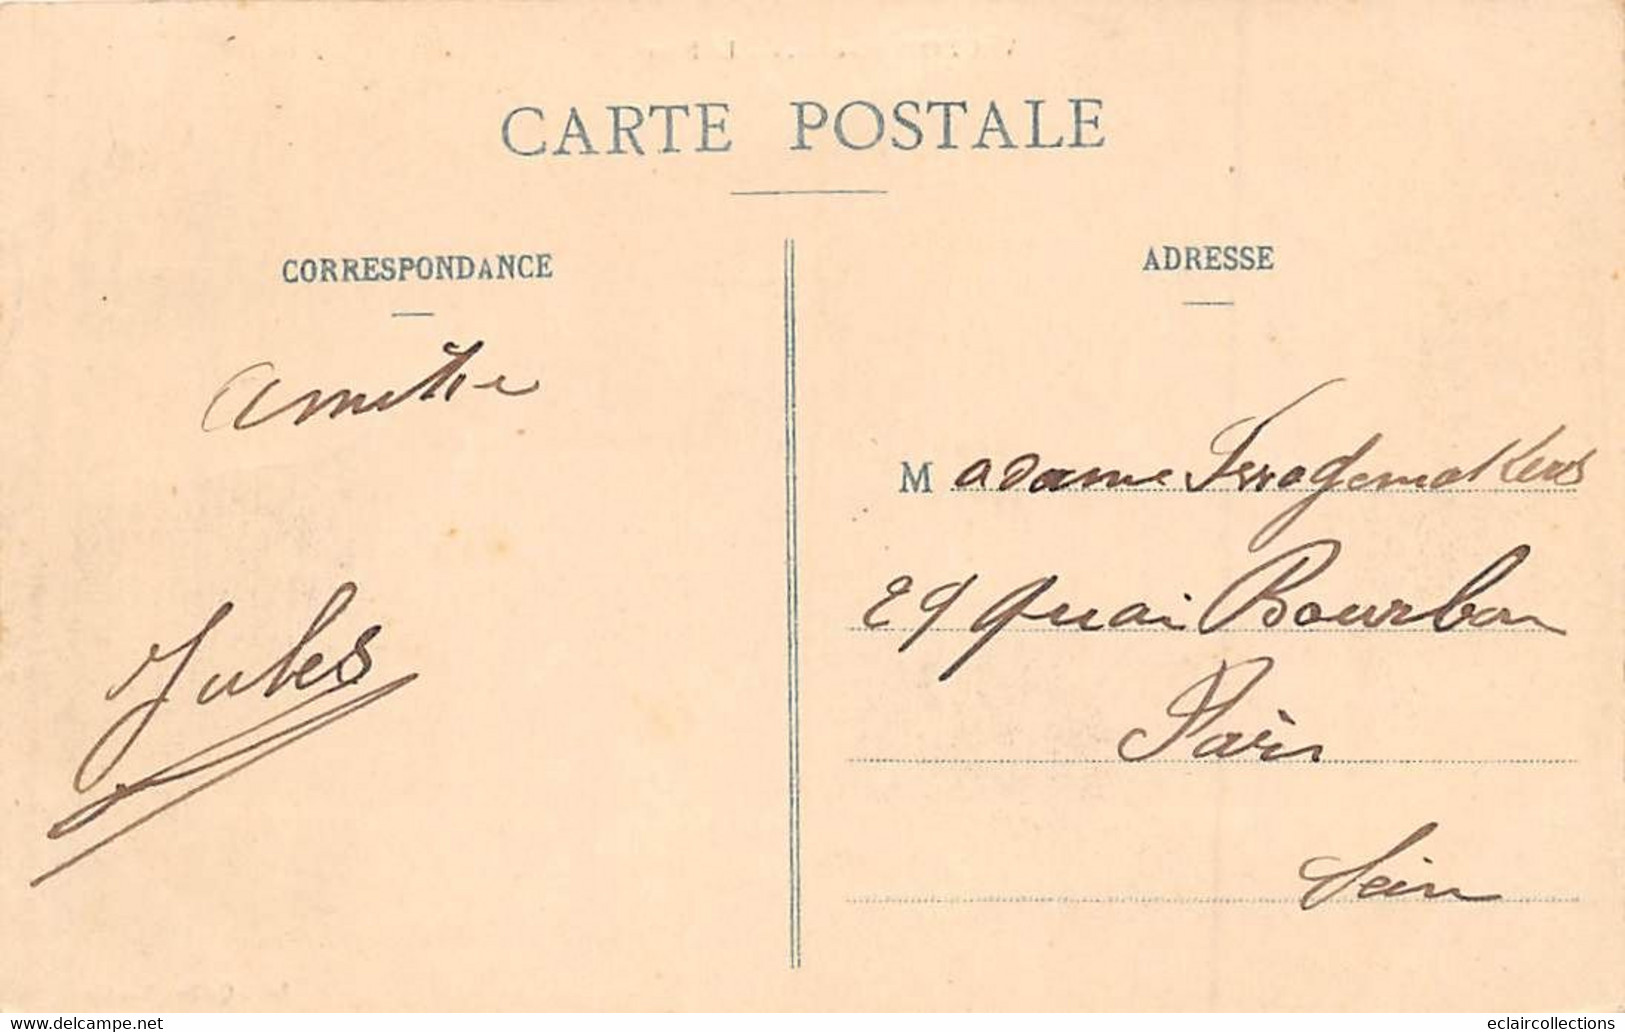 CARTE POSTALE
CORRESPONDANCE
Amitié
Jules
ADRESSE
Madame
29 Quai Bourbon
Paris
Seine
www.delcampe.net
eclaircollections